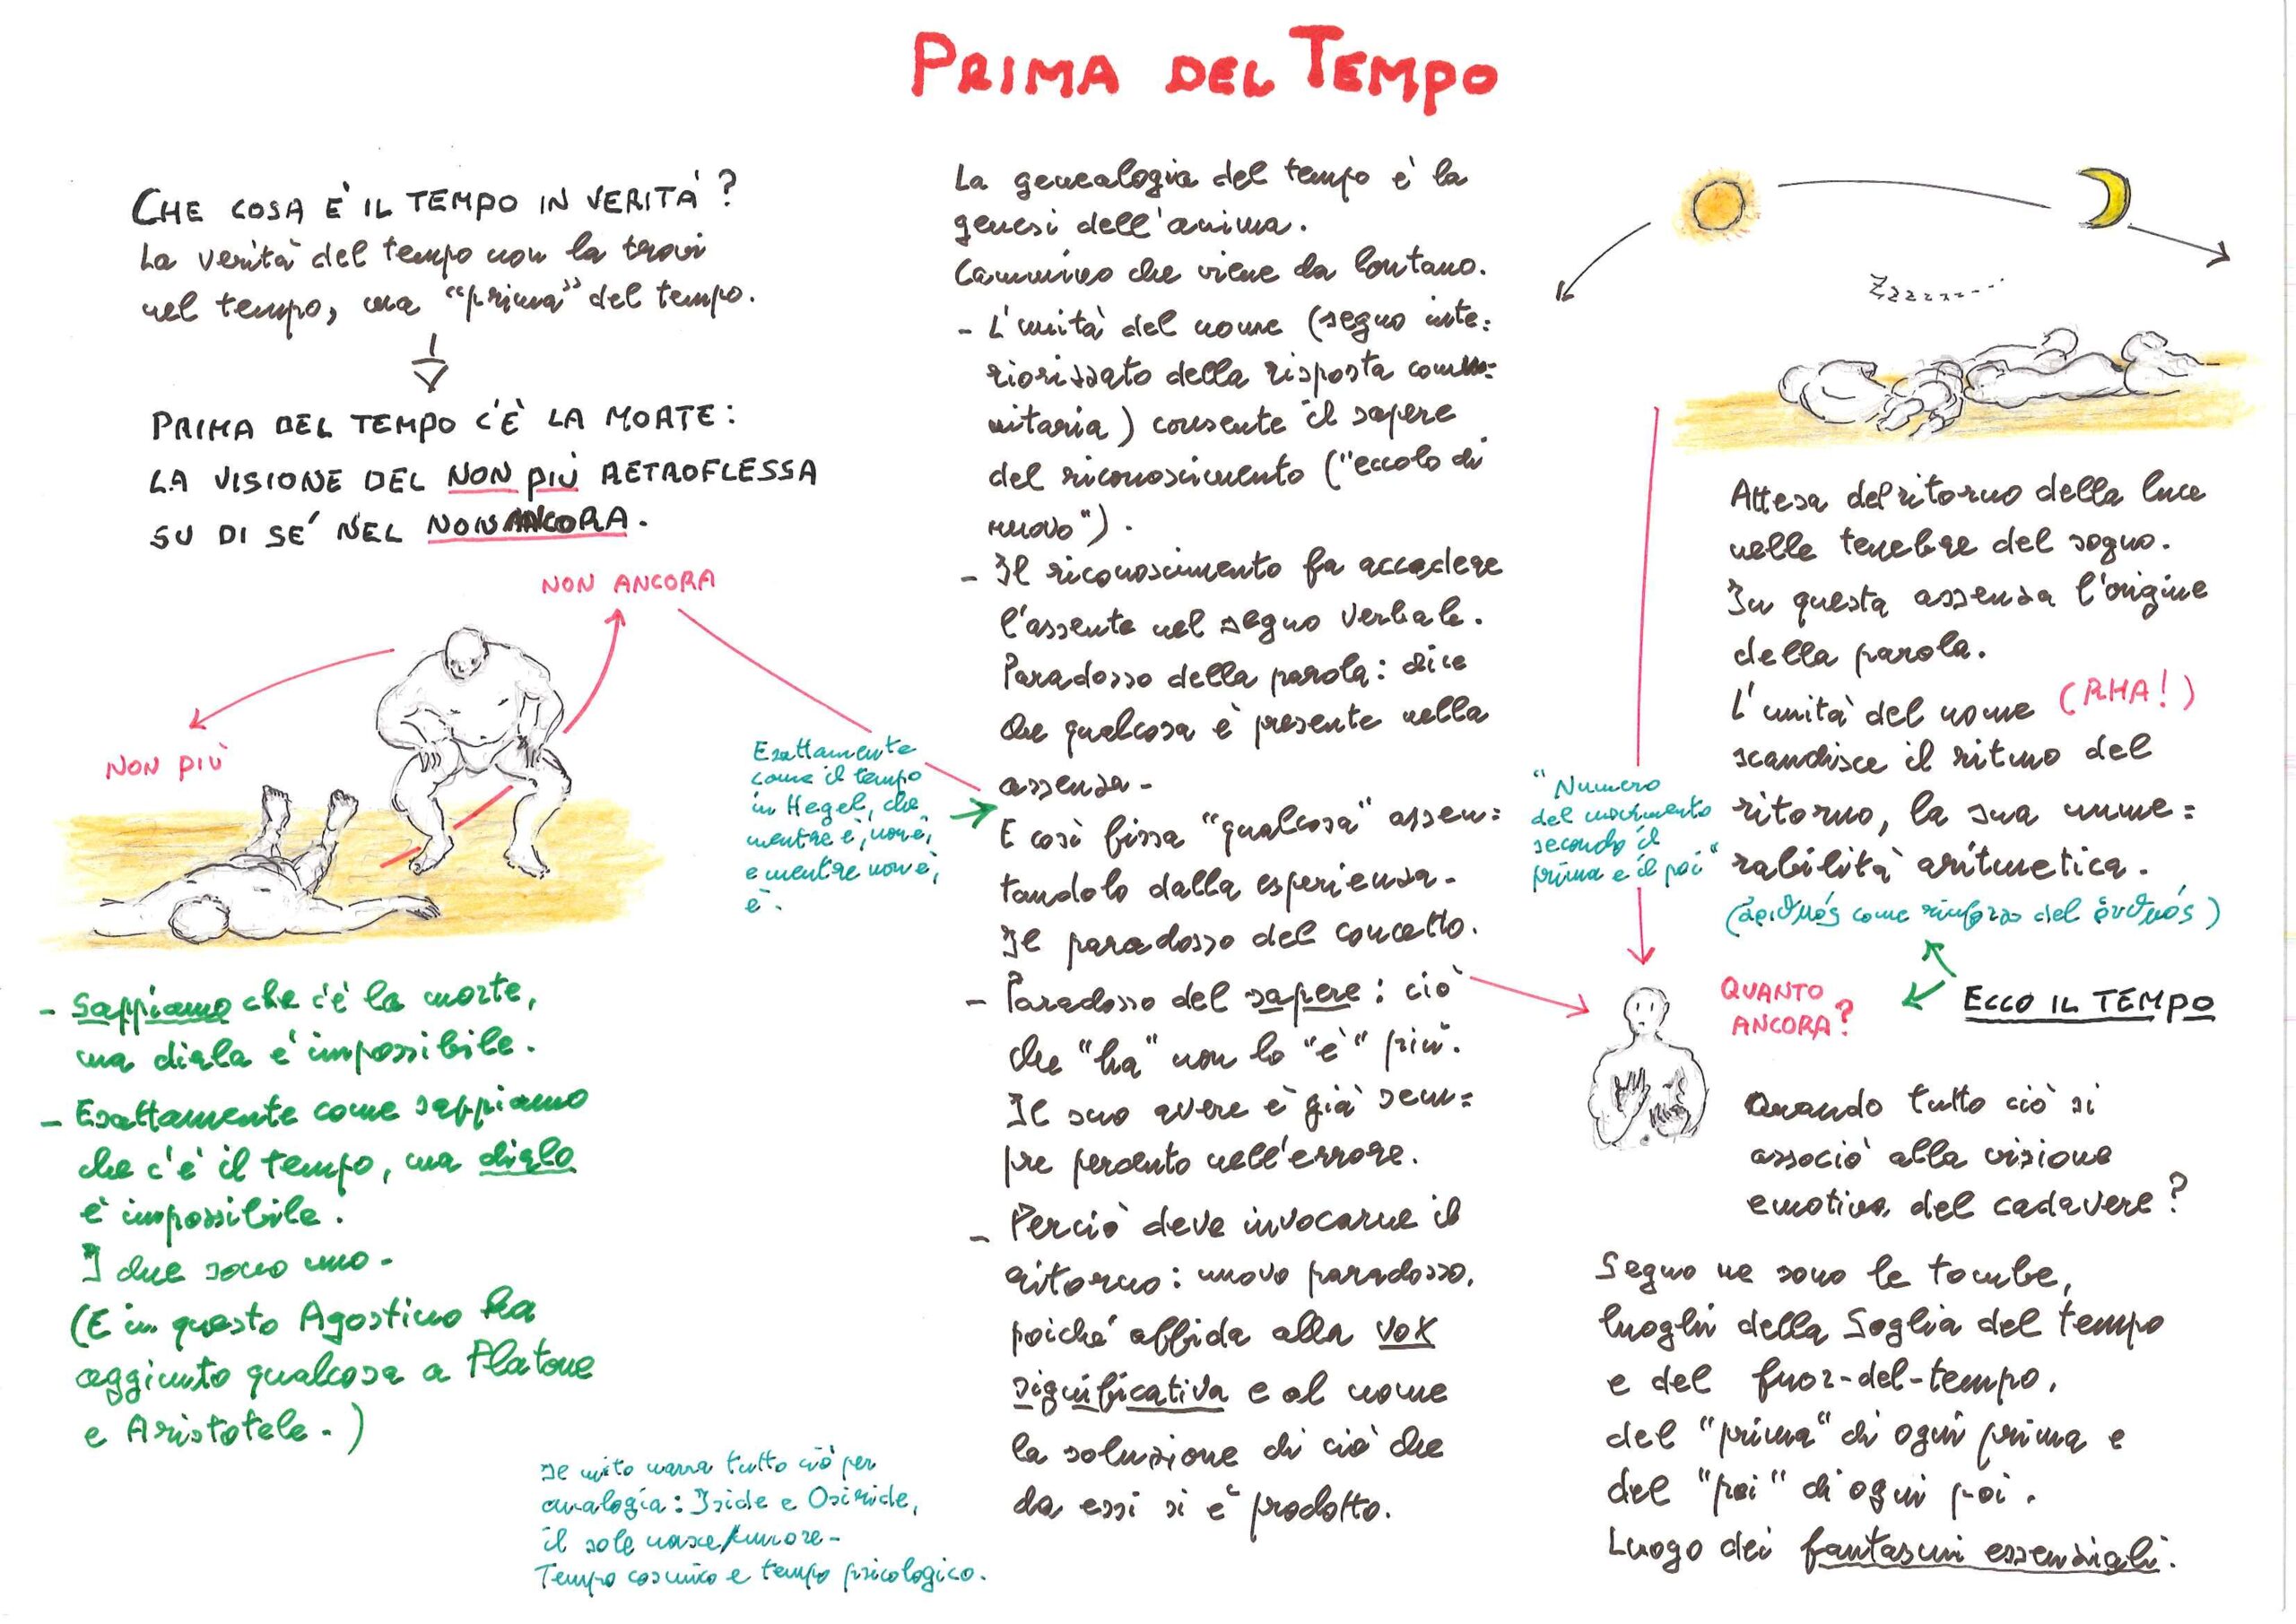 PRIMA DEL TEMPO
CHE COSA È IL TEMPO IN VERITÀ?
La verità del tempo non la trovi
nel tempo, ma “prima” del tempo.
PRIMA DEL TEMPO C'È LA MORTE:
LA VISIONE DEL NON PIÙ RETROFLESSA
SU DI SE' NEL NON ANCORA.
NON ANCORA
NON PIÙ
- Sappiamo che c'è la morte,
ma dirla è impossibile.
- Esattamente come sappiamo
che c'è il tempo, ma dirlo
è impossibile.
I due sono uno.
(E in questo Agostino ha
aggiunto qualcosa a Platone
e Aristotele.)
Il mito narra tutto ciò per
analogia: Iside e Osiride,
il sole nasce/muore.
Tempo cosmico e tempo psicologico.
Esattamente
come il tempo
in Hegel, che
mentre è, non è,
e mentre non è,
è.
La genealogia del tempo è la
genesi dell'anima.
Cammino che viene da lontano.
- L'unità del nome (segno inte=
riorizzato della risposta comu=
nitaria) consente il sapere
del riconoscimento (“eccolo di
nuovo”).
- Il riconoscimento fa accadere
l'assente nel segno verbale.
Paradosso della parola: dice
che qualcosa è presente nella
assenza.
E così fissa “qualcosa” assen=
tandolo dalla esperienza.
Il paradosso del concetto.
- Paradosso del sapere: ciò
che “ha” non lo “è” più.
Il suo avere è già sem=
pre perduto nell'errore.
- Perciò deve invocarne il
ritorno: nuovo paradosso,
poiché affida alla vox
significativa e al nome
la soluzione di ciò che
da essi si è prodotto.
Zzzzzzz....
Attesa del ritorno della luce
nelle tenebre del sogno.
In questa assenza l'origine
della parola.
L'unità del nome (RHA!)
scandisce il ritmo del
ritorno, la sua nume=
rabilità aritmetica.
(ἀριθμός come rinforzo del ῥυθμός)
“Numero
del movimento
secondo il
prima e il poi”
ECCO IL TEMPO
QUANTO
ANCORA?
Quando tutto ciò si
associò alla visione
emotiva del cadavere?
Segno ne sono le tombe,
luoghi della Soglia del tempo
e del fuor-del-tempo,
del “prima” di ogni prima e
del “poi” di ogni poi.
Luogo dei fantasmi essenziali.